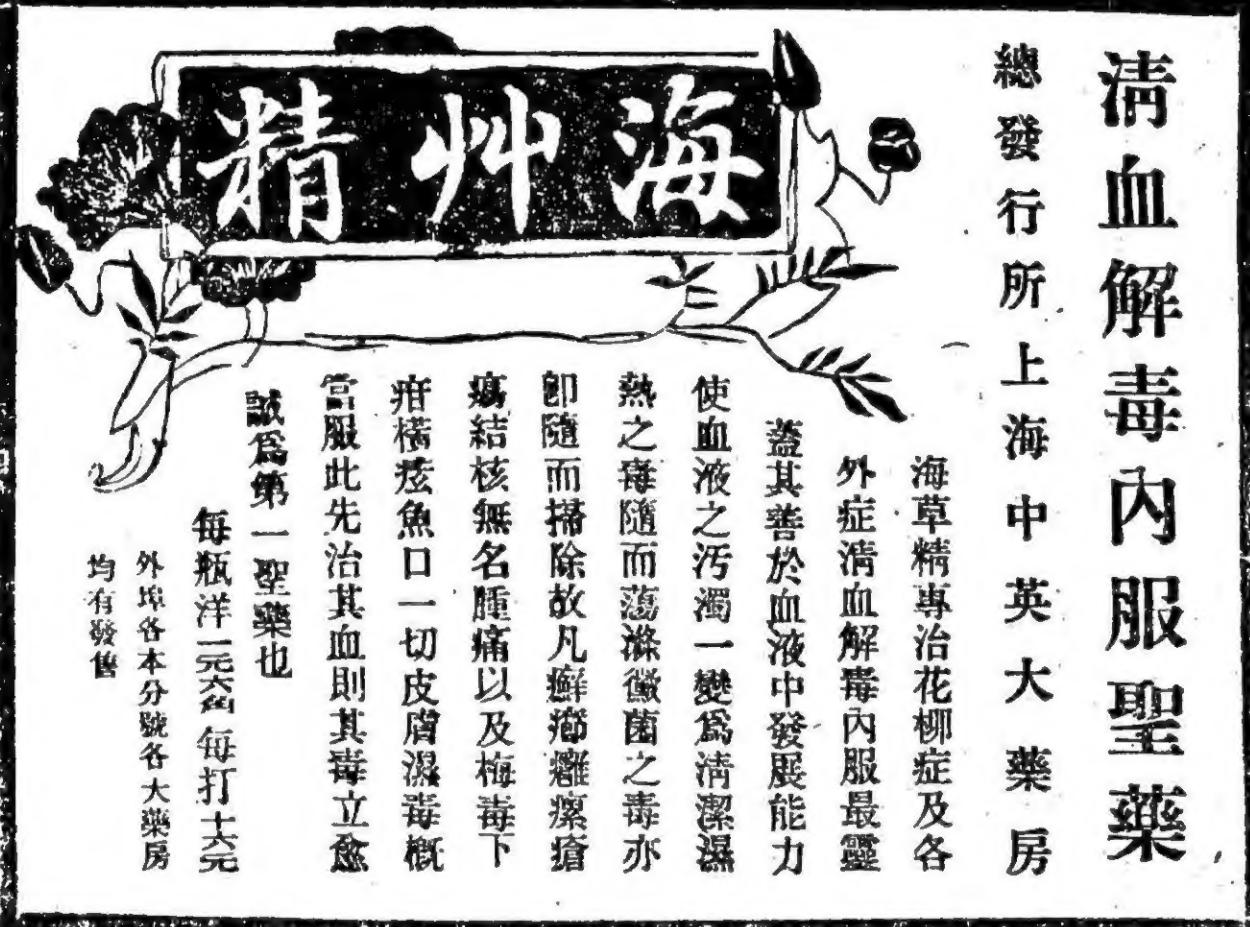 清血解毒內服聖藥
總發行所上海中英大藥房
海艸精
海草精專治花柳症及各
外症清血解毒內服最靈
蓋其善於血液中發展能力
使血液之汚濁一變爲清潔濕
熱之毒隨而蕩滌黴菌之毒亦
卽隨而掃除故凡癬瘰瘡
結核無名腫痛以及梅毒下
疳橫痃魚口一切皮膚濕毒槪
當服此先治其血則其毒立愈
誠爲第一聖藥也
每瓶洋一元六角每打十六元
外埠各本分號各大藥房
均有發售